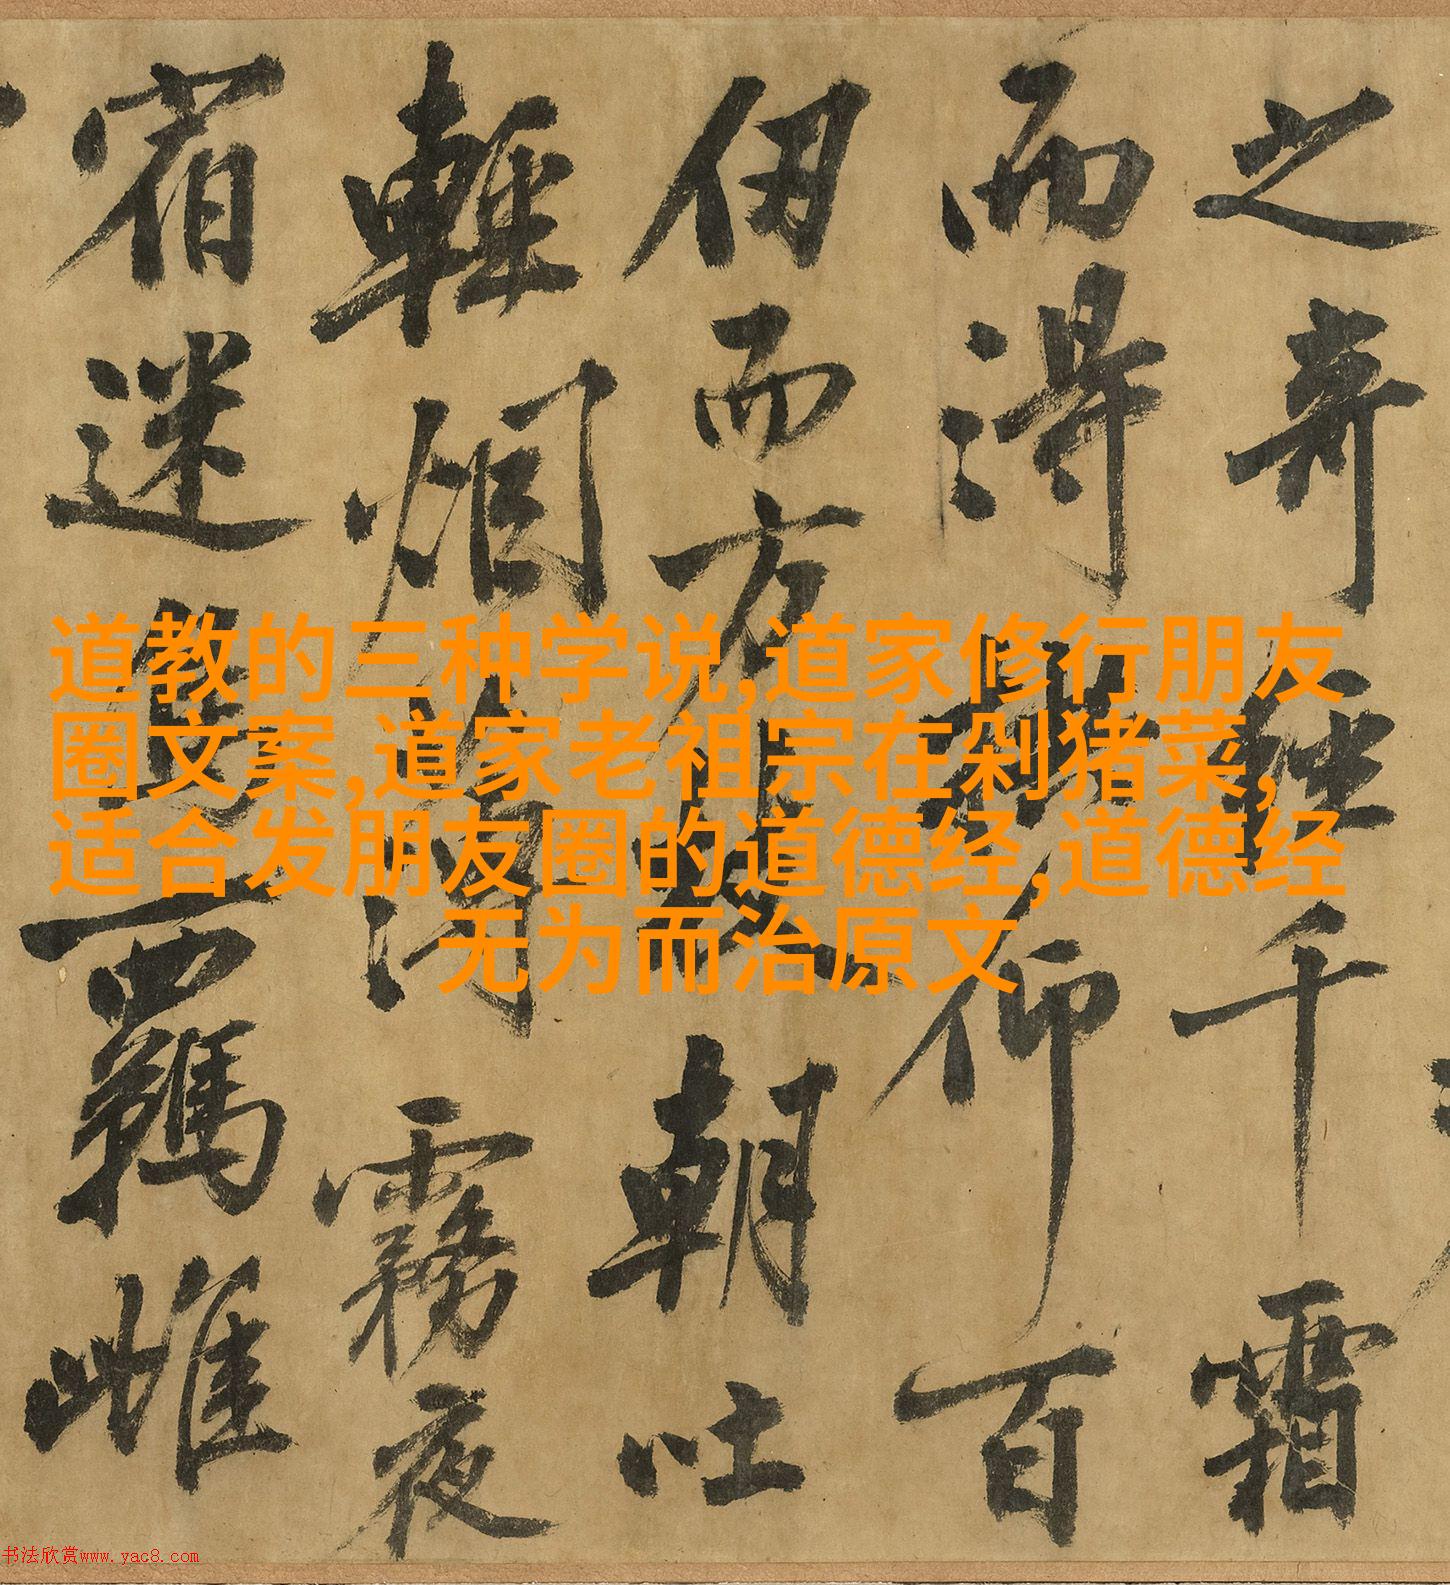 之奇千霜
而得仰百
仞而方朝吐
輕烟霧夜
宿迷羈雌
道教的三种学说,道家修行朋友
圈文案,道家老祖宗在剁猪菜,
适合发朋友圈的道德经,道德经
无为而治原文
书法欣赏www.yac8.com